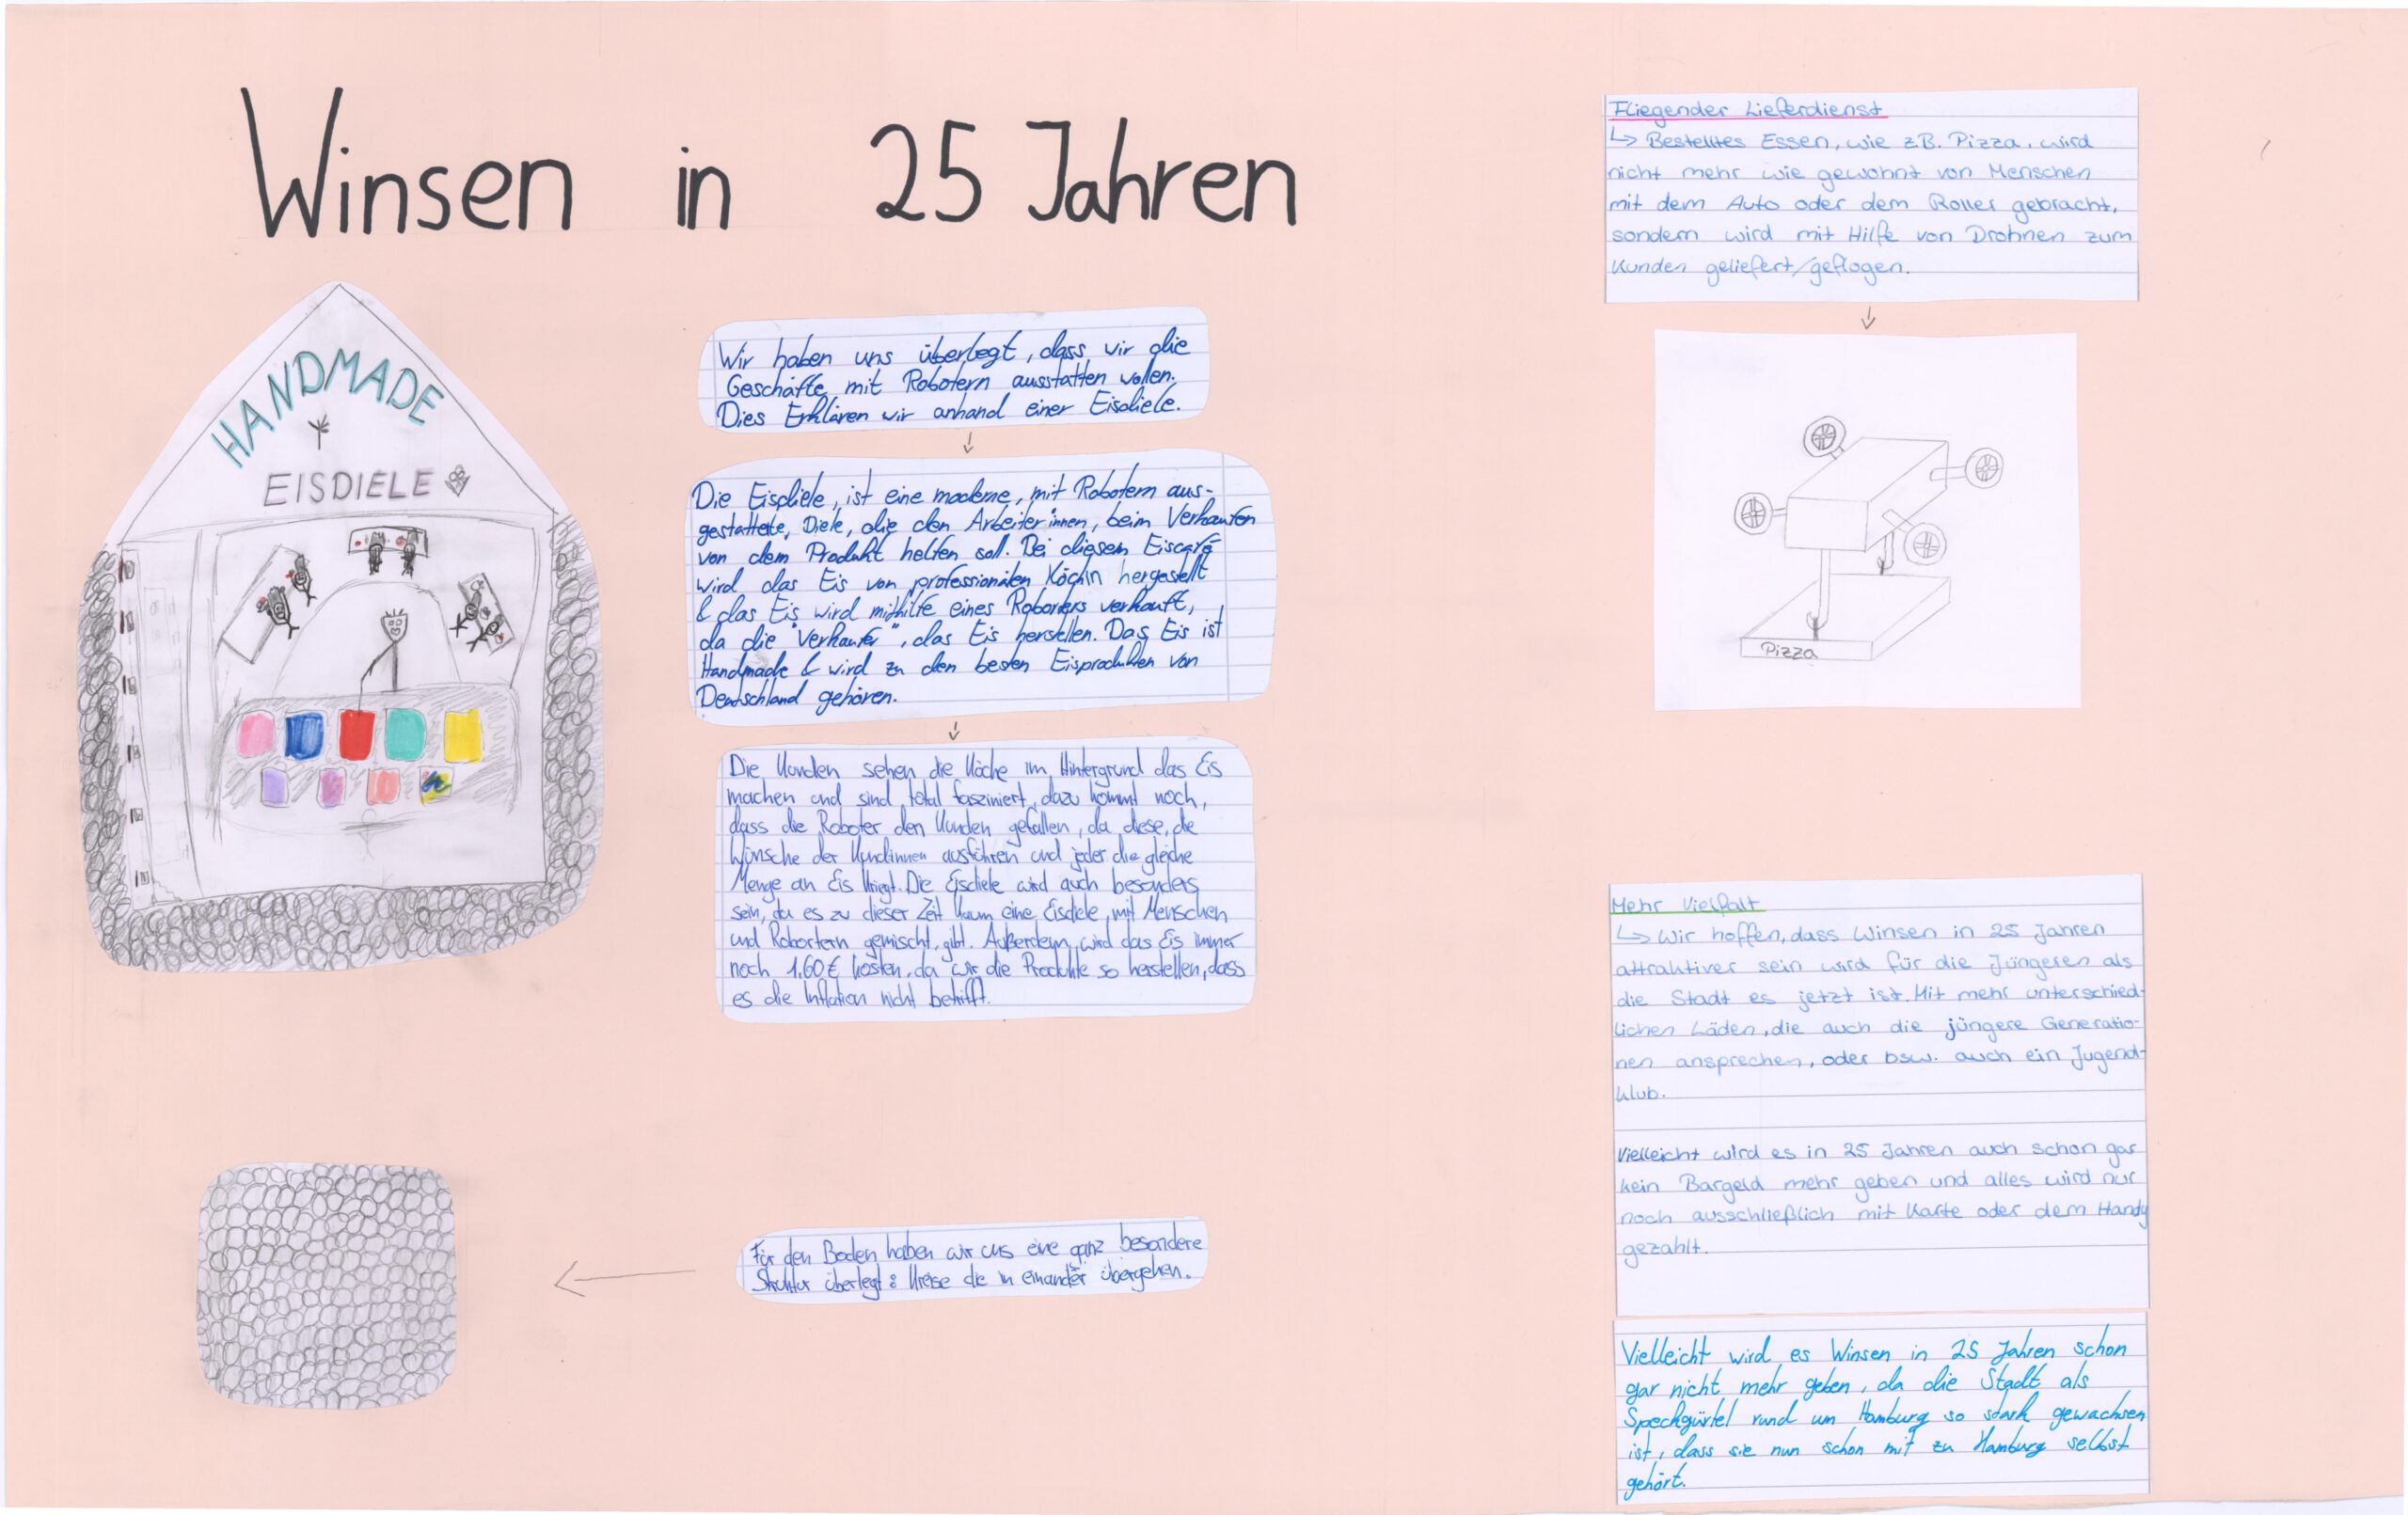 Winsen in 25 Jahren
HANDMADE
EISDIELE
Wir haben uns überlegt, dass wir die
Geschäfte mit Robotern ausstatten wollen.
Dies Erklären wir anhand einer Eisdiele.
Die Eisdiele, ist eine moderne, mit Robotern aus-
gestattete, Diele, die den Arbeiter*innen, beim Verkaufen
von dem Produkt helfen soll. Bei diesem Eiscafé
wird das Eis von professionälen Köchin hergestellt
& das Eis wird mithilfe eines Roborters verkauft,
da die "Verkaufer", das Eis herstellen. Das Eis ist
Handmade & wird zu den besten Eisprodukten von
Deutschland gehören.
Die Kunden sehen die Köche im Hintergrund das Eis
machen und sind total fasziniert, dazu kommt noch,
dass die Roboter den Kunden gefallen, da diese, die
Wünsche der Kundinnen ausführen und jeder die gleiche
Menge an Eis kriegt. Die Eisdiele wird auch besonders
sein, da es zu dieser Zeit kaum eine Eisdiele, mit Menschen
und Robortern gemischt, gibt. Außerdem, wird das Eis immer
noch 1,60€ kosten, da wir die Produkte so herstellen, dass
es die Inflation nicht betrifft.
Für den Boden haben wir uns eine ganz besondere
Struktur überlegt: Kreise die in einander übergehen.
Fliegender Lieferdienst
↳ Bestelltes Essen, wie z.B. Pizza, wird
nicht mehr wie gewohnt von Menschen
mit dem Auto oder dem Roller gebracht,
sondern wird mit Hilfe von Drohnen zum
Kunden geliefert/geflogen.
Pizza
Mehr Vielfalt
↳ Wir hoffen, dass Winsen in 25 Jahren
attraktiver sein wird für die Jüngeren als
die Stadt es jetzt ist. Mit mehr unterschied-
lichen Läden, die auch die jüngere Generatio-
nen ansprechen, oder bsw. auch ein Jugend-
klub.
Vielleicht wird es in 25 Jahren auch schon gar
kein Bargeld mehr geben und alles wird nur
noch ausschließlich mit Karte oder dem Handy
gezahlt.
Vielleicht wird es Winsen in 25 Jahren schon
gar nicht mehr geben, da die Stadt als
Speckgürtel rund um Hamburg so stark gewachsen
ist, dass sie nun schon mit zu Hamburg selbst
gehört.